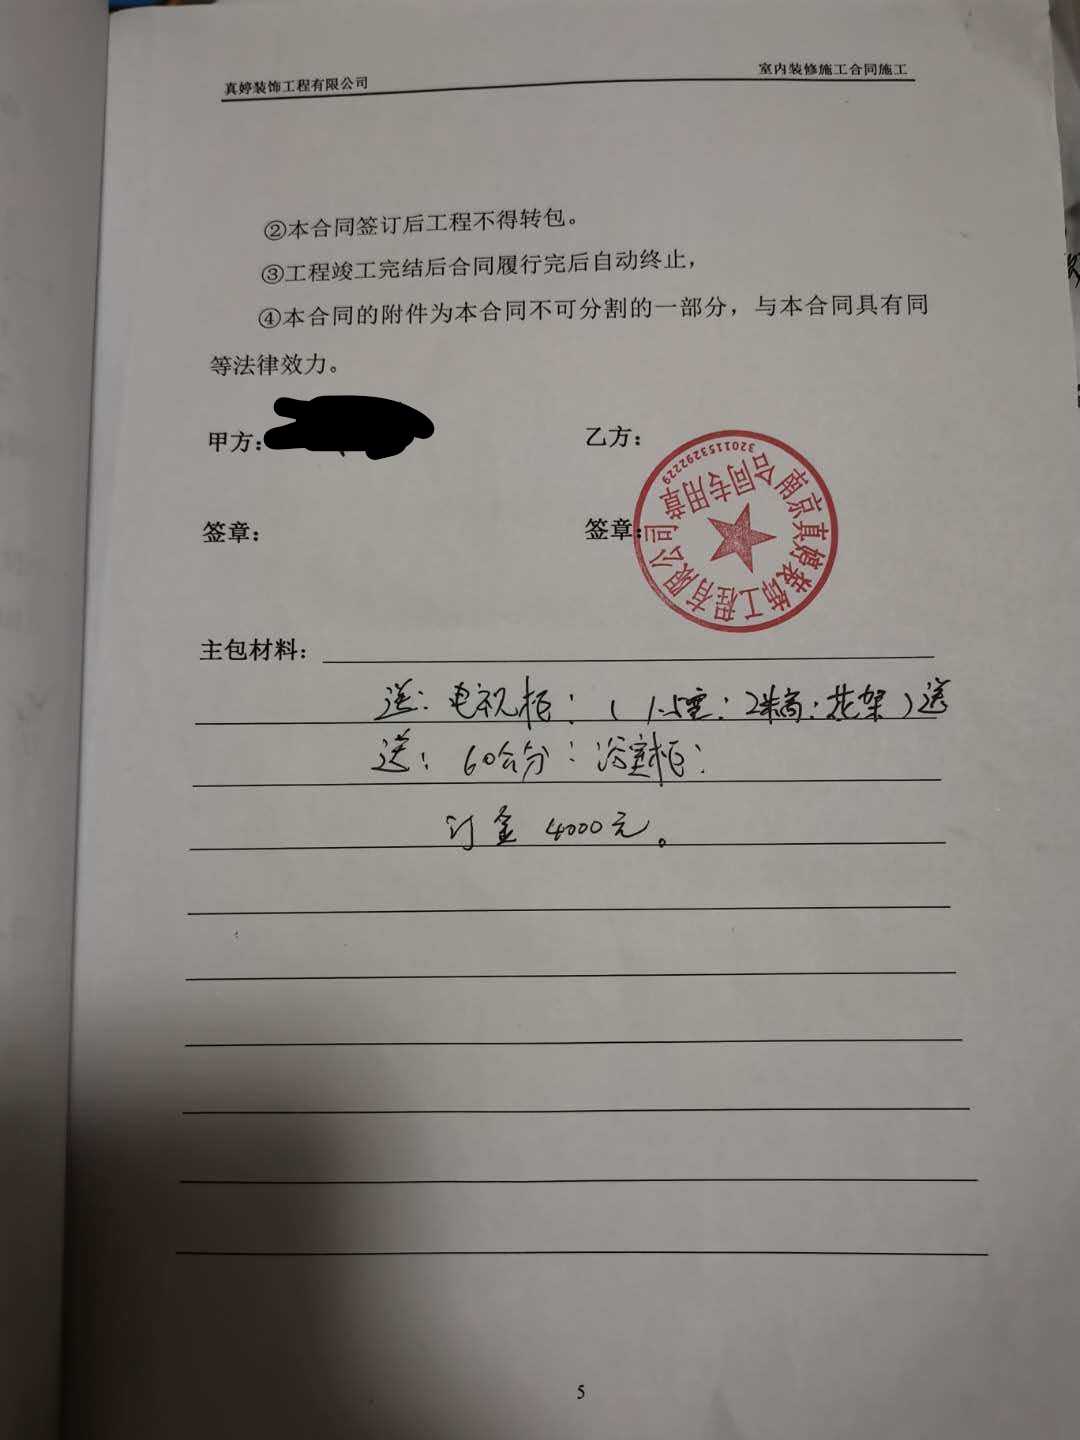 真婷装饰工程有限公司
室内装修施工合同施工
②本合同签订后工程不得转包。
③工程竣工完结后合同履行完后自动终止，
④本合同的附件为本合同不可分割的一部分，与本合同具有同
等法律效力。
甲方：
乙方：
签章：
签章：
南京真婷装饰工程有限公司
合同专用章
3201153292229
主包材料：
送：电视柜：（1.5宽：2米高：花架）送
送：60公分：浴室柜：
订金 4000元。
5